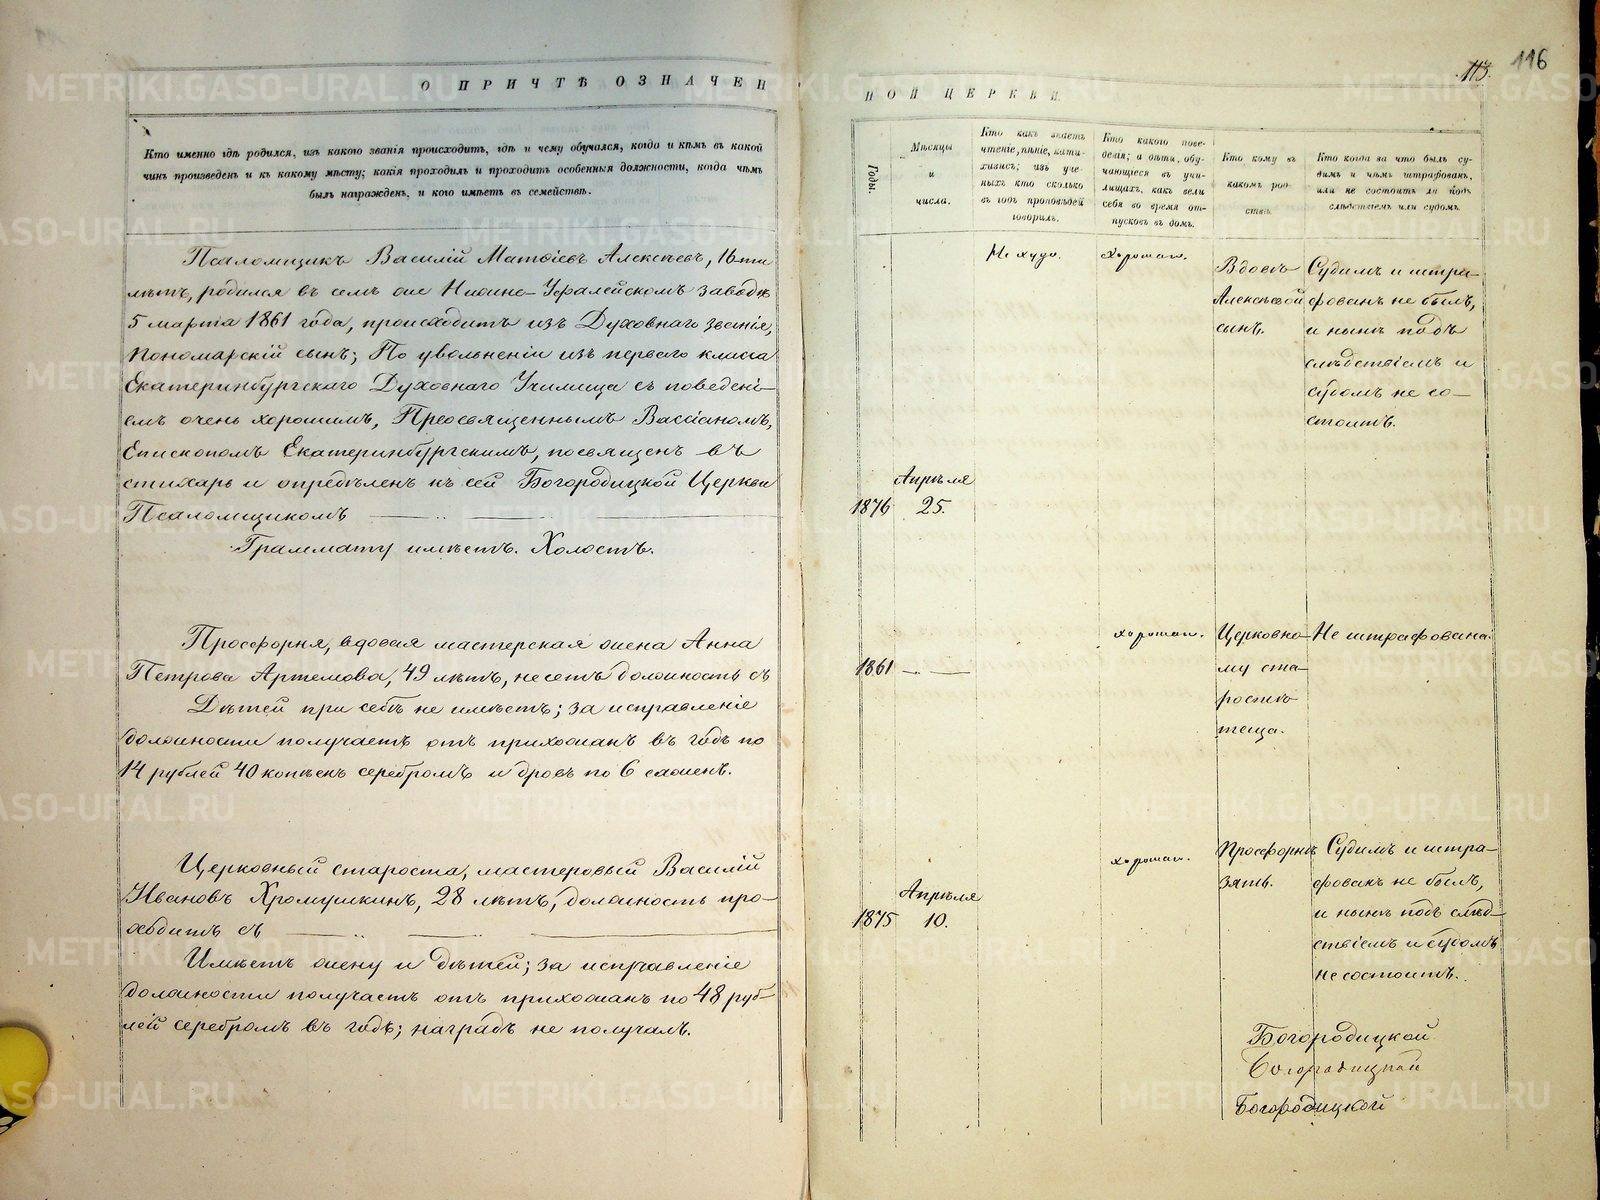 О ПРИЧТѢ ОЗНАЧЕН
Кто именно гдѣ родился, изъ какого званія происходитъ, гдѣ и чему обучался, когда и кѣмъ въ какой
чинъ произведенъ и къ какому мѣсту; какія проходилъ и проходитъ особенныя должности, когда чѣмъ
былъ награжденъ, и кого имѣетъ въ семействѣ.
Псаломщикъ Василій Матвіевъ Алексѣевъ, 16-ти
лѣтъ, родился въ семъ же Нижне-Уфалейскомъ заводѣ
5 марта 1861 года, происходитъ изъ Духовнаго званія,
пономарскій сынъ; По увольненіи изъ перваго класса
Екатеринбургскаго Духовнаго Училища съ поведені-
емъ очень хорошимъ, Преосвященнымъ Вассіаномъ,
Епископомъ Екатеринбургскимъ, посвященъ въ
стихарь и опредѣленъ къ сей Богородицкой Церкви
Псаломщикомъ
Граммату имѣетъ. Холостъ.
Просфорня, вдовая мастерская жена Анна
Петрова Артемова, 49 лѣтъ, несетъ должность съ
Дѣтей при себѣ не имѣетъ; за исправленіе
должности получаетъ отъ прихожанъ въ годъ по
14 рублей 40 копѣекъ серебромъ и дровъ по 6 сажень.
Церковный староста, мастеровый Василій
Ивановъ Хромушкинъ, 28 лѣтъ, должность про-
ходитъ съ
Имѣетъ жену и дѣтей; за исправленіе
должности получаетъ отъ прихожанъ по 48 руб-
лей серебромъ въ годъ; наградъ не получалъ.
НОЙ ЦЕРКВИ
113.
116
Годы.
Мѣсяцы
и
числа.
Кто какъ знаетъ
чтеніе, пѣніе, кати-
хизисъ; изъ уче-
ныхъ кто сколько
въ годъ проповѣдей
говорилъ.
Кто какого пове-
денія; а дѣти, обу-
чающіеся въ учи-
лищахъ, какъ вели
себя во время от-
пусковъ въ домъ.
Кто кому въ
какомъ род-
ствѣ.
Кто когда за что былъ су-
димъ и чѣмъ штрафованъ,
или не состоитъ ли подъ
слѣдствіемъ или судомъ.
1876
Апрѣля
25.
Не худо.
Хорошаго.
Вдовѣ
Алексѣевой
сынъ.
Судимъ и штра-
фованъ не былъ,
и нынѣ подъ
слѣдствіемъ и
судомъ не со-
стоитъ.
1861
хорошаго.
Церковно-
му ста-
ростѣ
теща.
Не штрафована.
1875
Апрѣля
10.
хорошаго.
Просфорнѣ
зять.
Судимъ и штра-
фованъ не былъ,
и нынѣ подъ слѣд-
ствіемъ и судомъ
не состоитъ.
Богородицкой
Богородицкой
Богородицкой
METRIKI.GASO-URAL.RU